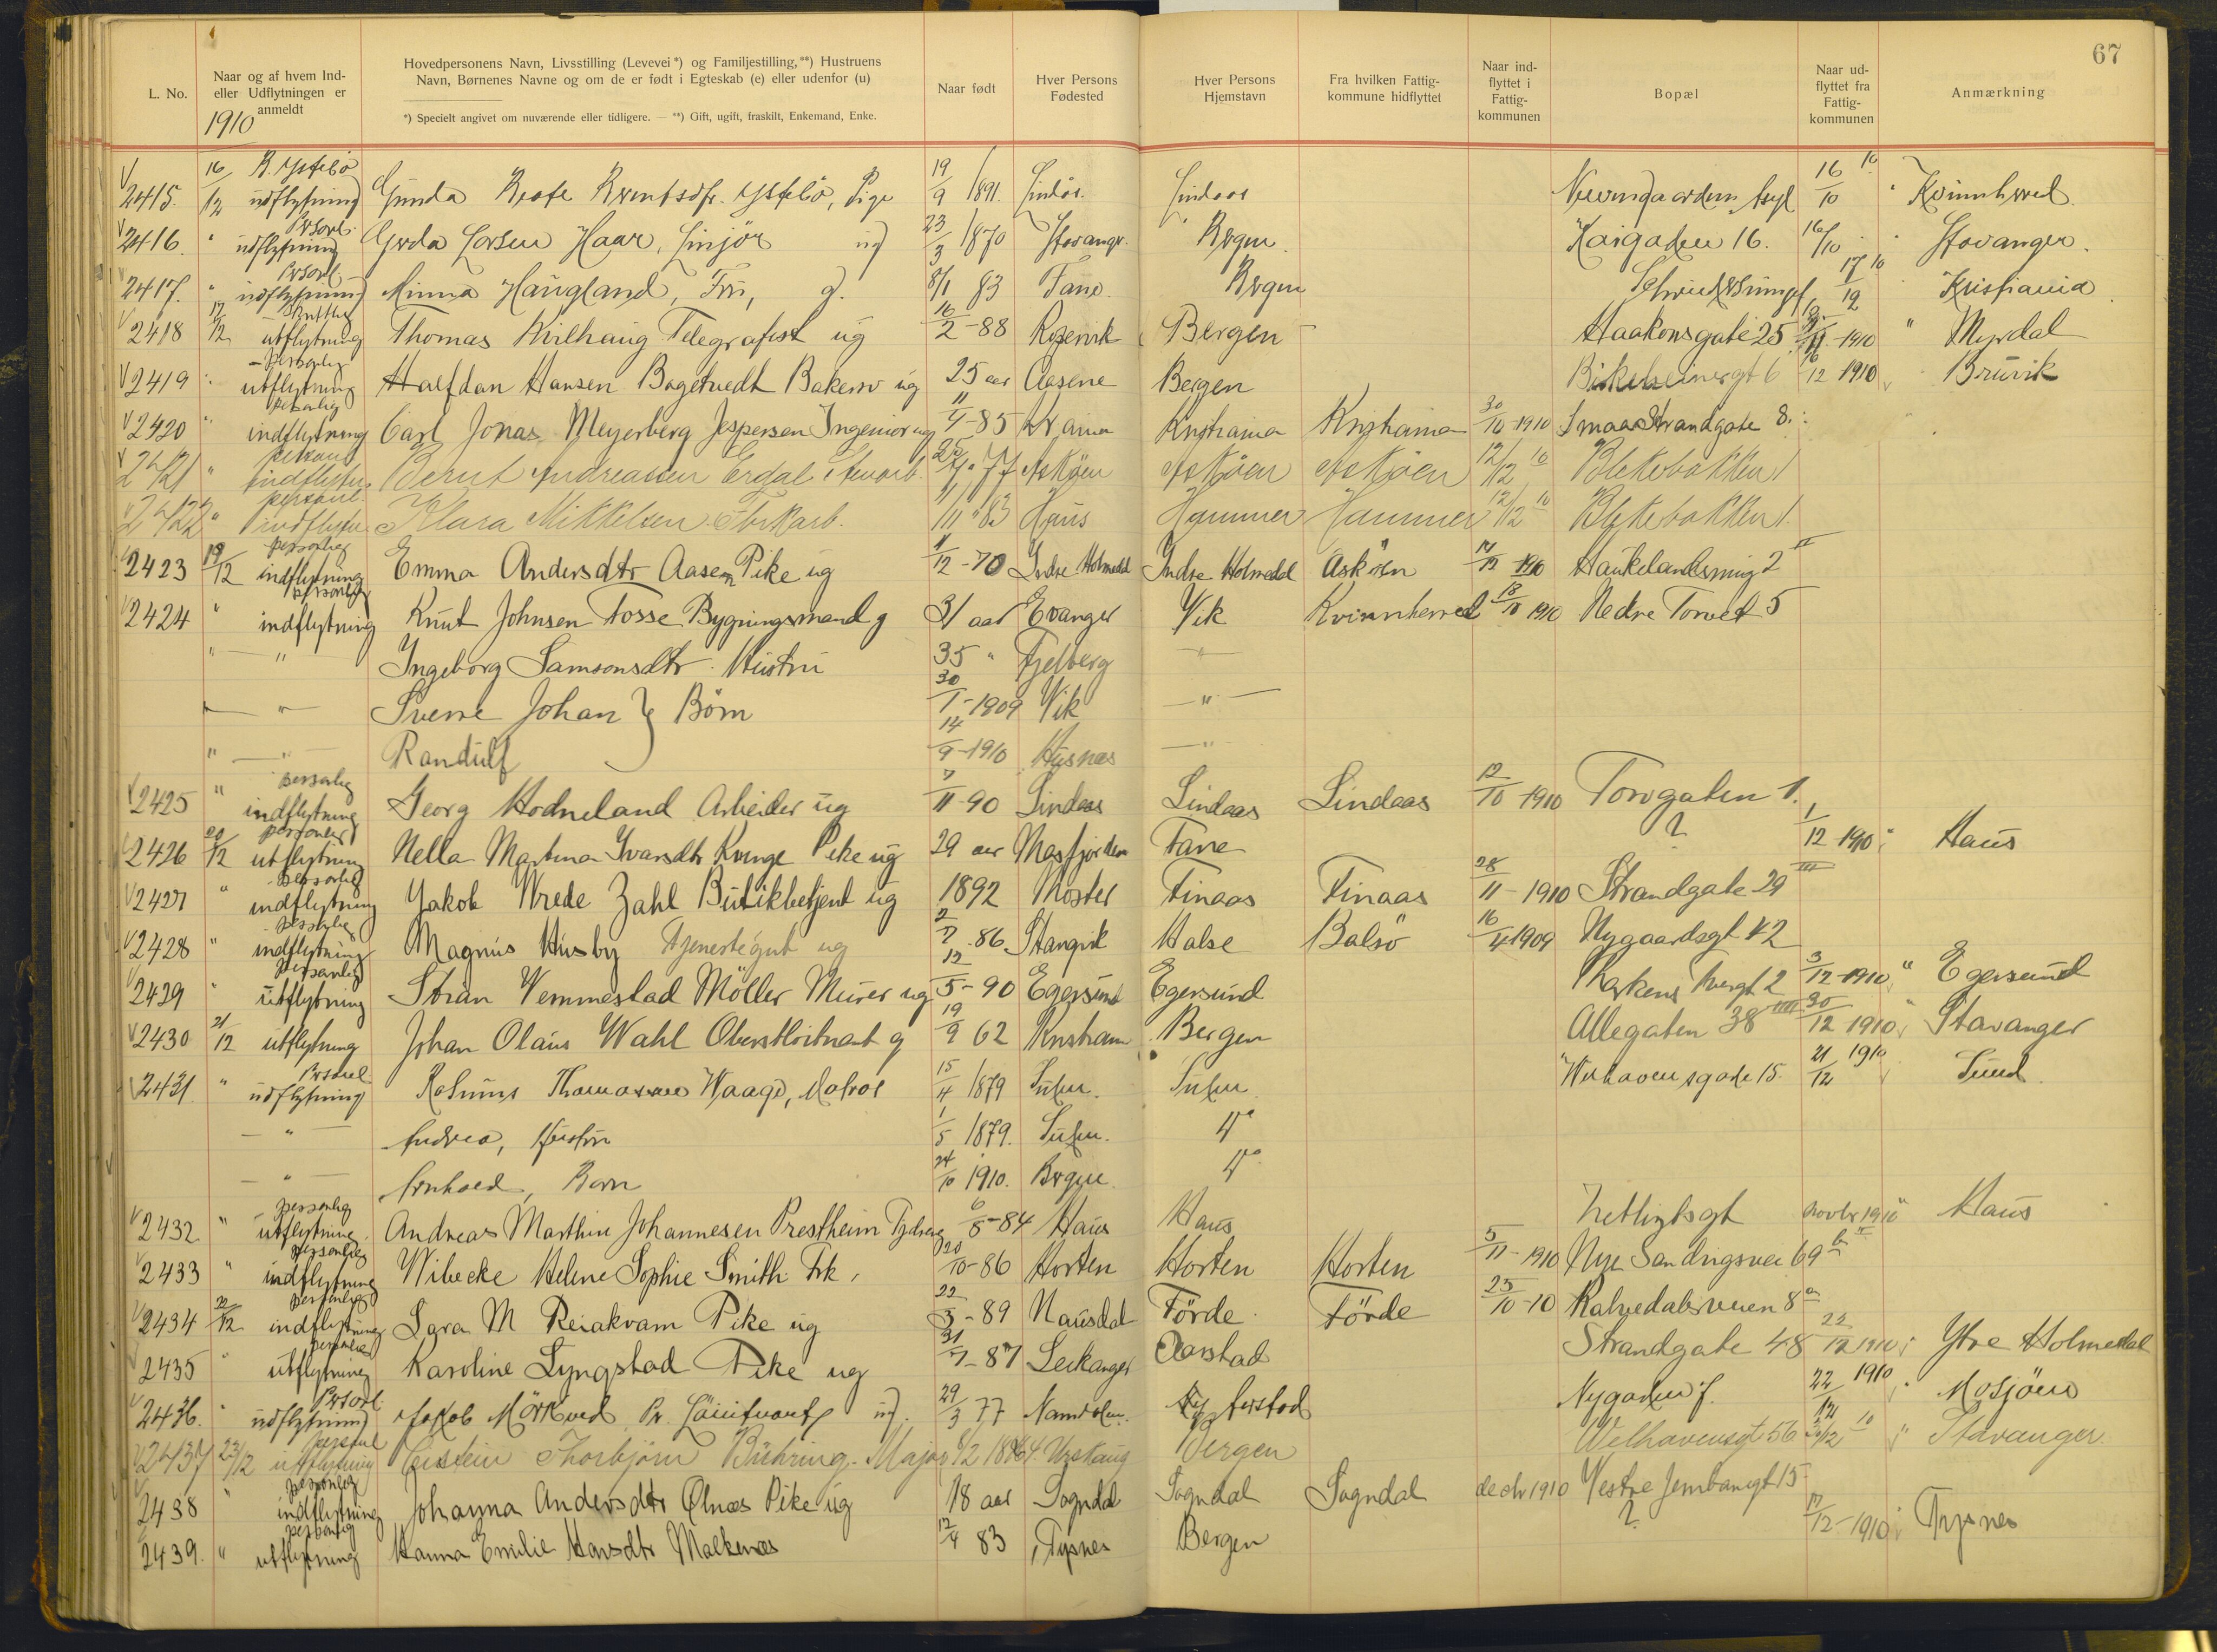 67
L. No.
Naar og af hvem Ind- eller Udflytningen er anmeldt
1910
Hovedpersonens Navn, Livsstilling (Levevei*) og Familjestilling,**) Hustruens Navn, Børnenes Navne og om de er født i Egteskab (e) eller udenfor (u)
*) Specielt angivet om nuværende eller tidligere. — **) Gift, ugift, fraskilt, Enkemand, Enke.
Naar født
Hver Persons Fødested
Hver Persons Hjemstavn
Fra hvilken Fattig- kommune hidflyttet
Naar ind- flyttet i Fattig- kommunen
Bopæl
Naar ud- flyttet fra Fattig- kommunen
Anmærkning
2415. 16/12 udflytning Ystebø, Pige 19/9 1891. Lindås. Lindaas 16/10 10
2416. " udflytning Gerda Larsen Haar, ug 23/3 1870 Stavanger Bergen. Kaigaden 16. 16/10 Stavanger.
2417. " udflytning Minna Haugland, Fru, g. 8/1 83 Fane. Bergen Kristiania
2418 17/12 utflytning Thomas Telegrafist ug 16/2-88 Bergen Haakonsgate 25 1910 " Myrdal
2419 " personlig utflytning Halfdan Hansen Bagetvedt Bakersv ug 25 aar Aasene Bergen 12 1910 Bruvik
2420 " personlig indflytning Carl Jonas Meyerberg Jespersen Ingeniør ug 85 Kr.ania Kristiania Kristiania 30/10-1910 Smaastrandgate 8.
2421 " indflytn. Bernt Andreassen Erdal 77 Askøen Askøen Askøen 12/12 10 Blekebakken 1
2422 " indflytn. Klara Mikkelsen Fbrkarb. 83 Haus Hammer Hammer 12/12 10 Blekebakken 1.
2423 19/12 personlig indflytning Emma Andersdtr Aasen Pike ug 12-70 Indre Holmedal Indre Holmedal Askøen 1910 Haukelandsmug 2 II
2424 " personlig indflytning Knut Johnsen Fosse Bygningsmand g 31 aar Evanger Vik Kvinnherred 1910 Nedre Torvet 5
" — " Ingeborg Samsonsdtr Hustru 35 " Fjelberg — " —
— " — Sverre Johan } Børn 30/1-1909 Vik — " —
" — " — Randulf 14/9-1910 Husnæs — " —
2425 " personlig indflytning Georg Hodneland Arbeider ug 11-90 Lindaas Lindaas Lindaas 12/10-1910 Torvgaten 1.
2426 20/12 personlig utflytning Nella Martina Ivarsdtr Kvinge Pike ug 29 aar Masfjorden Fane ? 1/12 1910 Haus
2427 " personlig indflytning Jakob Wrede Zahl Butikbetjent ug 1892 Moster Finaas Finaas 28/11-1910 Strandgate 29 III
2428 " personlig indflytning Magnus Husby Tjenestegut ug 2/7 86 Stangvik Halse Balsø 16/4 1909 Nygaardsgt 42
2429 " personlig utflytning Vemmestad Möller Murer ug 12/5-90 Egersund Egersund 3/12-1910 " Egersund
2430 21/12 utflytning Johan Olaus Wahl Oberstløitnant g 19/9 62 Kristiania Bergen Allegaten 38 IIII 30/12 1910 Stavanger
2431 " udflytning Rasmus Thomassen Waage, Matros 15/4 1879 15. 21/12 1910 Sund
— " — Andrea, Hustru 1/5 1879. Do
— " — Arnhold, Barn 24/10 1910. Bergen Do
2432 " personlig utflytning Andreas Marthin Johannesen Prestheim 6/8-84 Haus Haus Zetlizsgt novbr 1910 Haus
2433 " personlig indflytning Wibecke Helene Sophie Smith Frk. 20/10-86 Horten Horten Horten 5/11-1910 Nye Sandvigsvei 69 b
2434 22/12 personlig indflytning Lara M Reiakvam Pike ug 22/5-89 Nausdal Førde Førde 25/10-10 Kalvedalsveien 8 a
2435 " personlig utflytning Karoline Lyngstad Pike ug 31/7-87 Leikanger Aarstad Strandgate 48 22/12 1910 Ytre Holmedal
2436. " udflytning Jakob Mörkved ug. 29/3 77 Namdalen 22/12 1910 Mosjøen
2437 23/12 utflytning Eistein Thorbjørn Bühring. Major Bergen Welhavensgt 56 12 10 " Stavanger.
2438 " personlig indflytning Johanna Andersdtr Ølnæs Pike ug 18 aar Sogndal Sogndal Sogndal decbr 1910 Vestre Jernbanegt 15
2439. " personlig utflytning Hanna Emilie Hansdtr Malkenes 83 Tysnes Bergen ? 17/12-1910 Tysnes